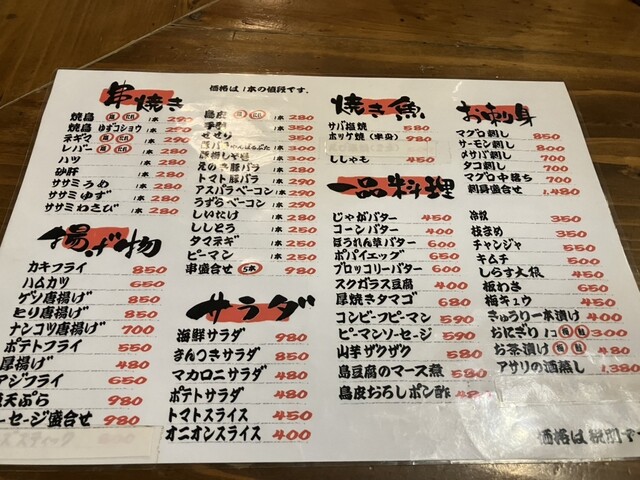 串焼き
価格は1本の値段です。
焼鳥 塩 たれ 1本 290
焼鳥 ゆずコショウ 1本 290
ネギマ 塩 たれ 1本 280
レバー 塩 たれ 1本 280
ハツ 1本 280
砂肝 1本 280
ササミうめ 1本 280
ササミゆず 1本 280
ササミわさび 1本 280
鳥皮 塩 たれ 1本 280
手羽 1本 350
せせり 1本 300
1本 350
1本 300
えのき豚バラ 1本 280
トマト豚バラ 1本 290
アスパラベーコン 1本 290
うずらベーコン 1本 290
しいたけ 1本 280
ししとう 1本 250
タマネギ 1本 250
ピーマン 1本 250
串盛合せ 5本 980
揚げ物
カキフライ 850
ハムカツ 650
ゲソ唐揚げ 850
とり唐揚げ 850
ナンコツ唐揚げ 700
ポテトフライ 550
厚揚げ 480
アジフライ 650
天ぷら 980
ーセージ盛合せ 980
スティック
サラダ
海鮮サラダ 980
さんつきサラダ 850
マカロニサラダ 480
ポテサラダ 480
トマトスライス 450
オニオンスライス 400
焼き魚
サバ塩焼 580
ホッケ焼（半身） 580
ししゃも 450
一品料理
じゃがバター 450
コーンバター 400
ほうれん草バター 600
ポパイエッグ 650
ブロッコリーバター 600
スクガラス豆腐 400
厚焼きタマゴ 600
コンビーフピーマン 580
ピーマンソーセージ 580
山芋ザクザク 580
島豆腐のマース煮 580
鳥皮おろしポン酢
冷奴 350
枝まめ 350
チャンジャ 550
キムチ 500
しらす大根 450
板わさ 650
梅キュウ 450
きゅうり一本漬け 400
おにぎり 1コ 梅 鮭 300
お茶漬け 梅 鮭 480
アサリの酒蒸し 1,380
お刺身
マグロ刺し 850
サーモン刺し 800
〆サバ刺し 700
タコ刺し 700
マグロ中落ち 700
刺身盛合せ 1,480
価格は税別です